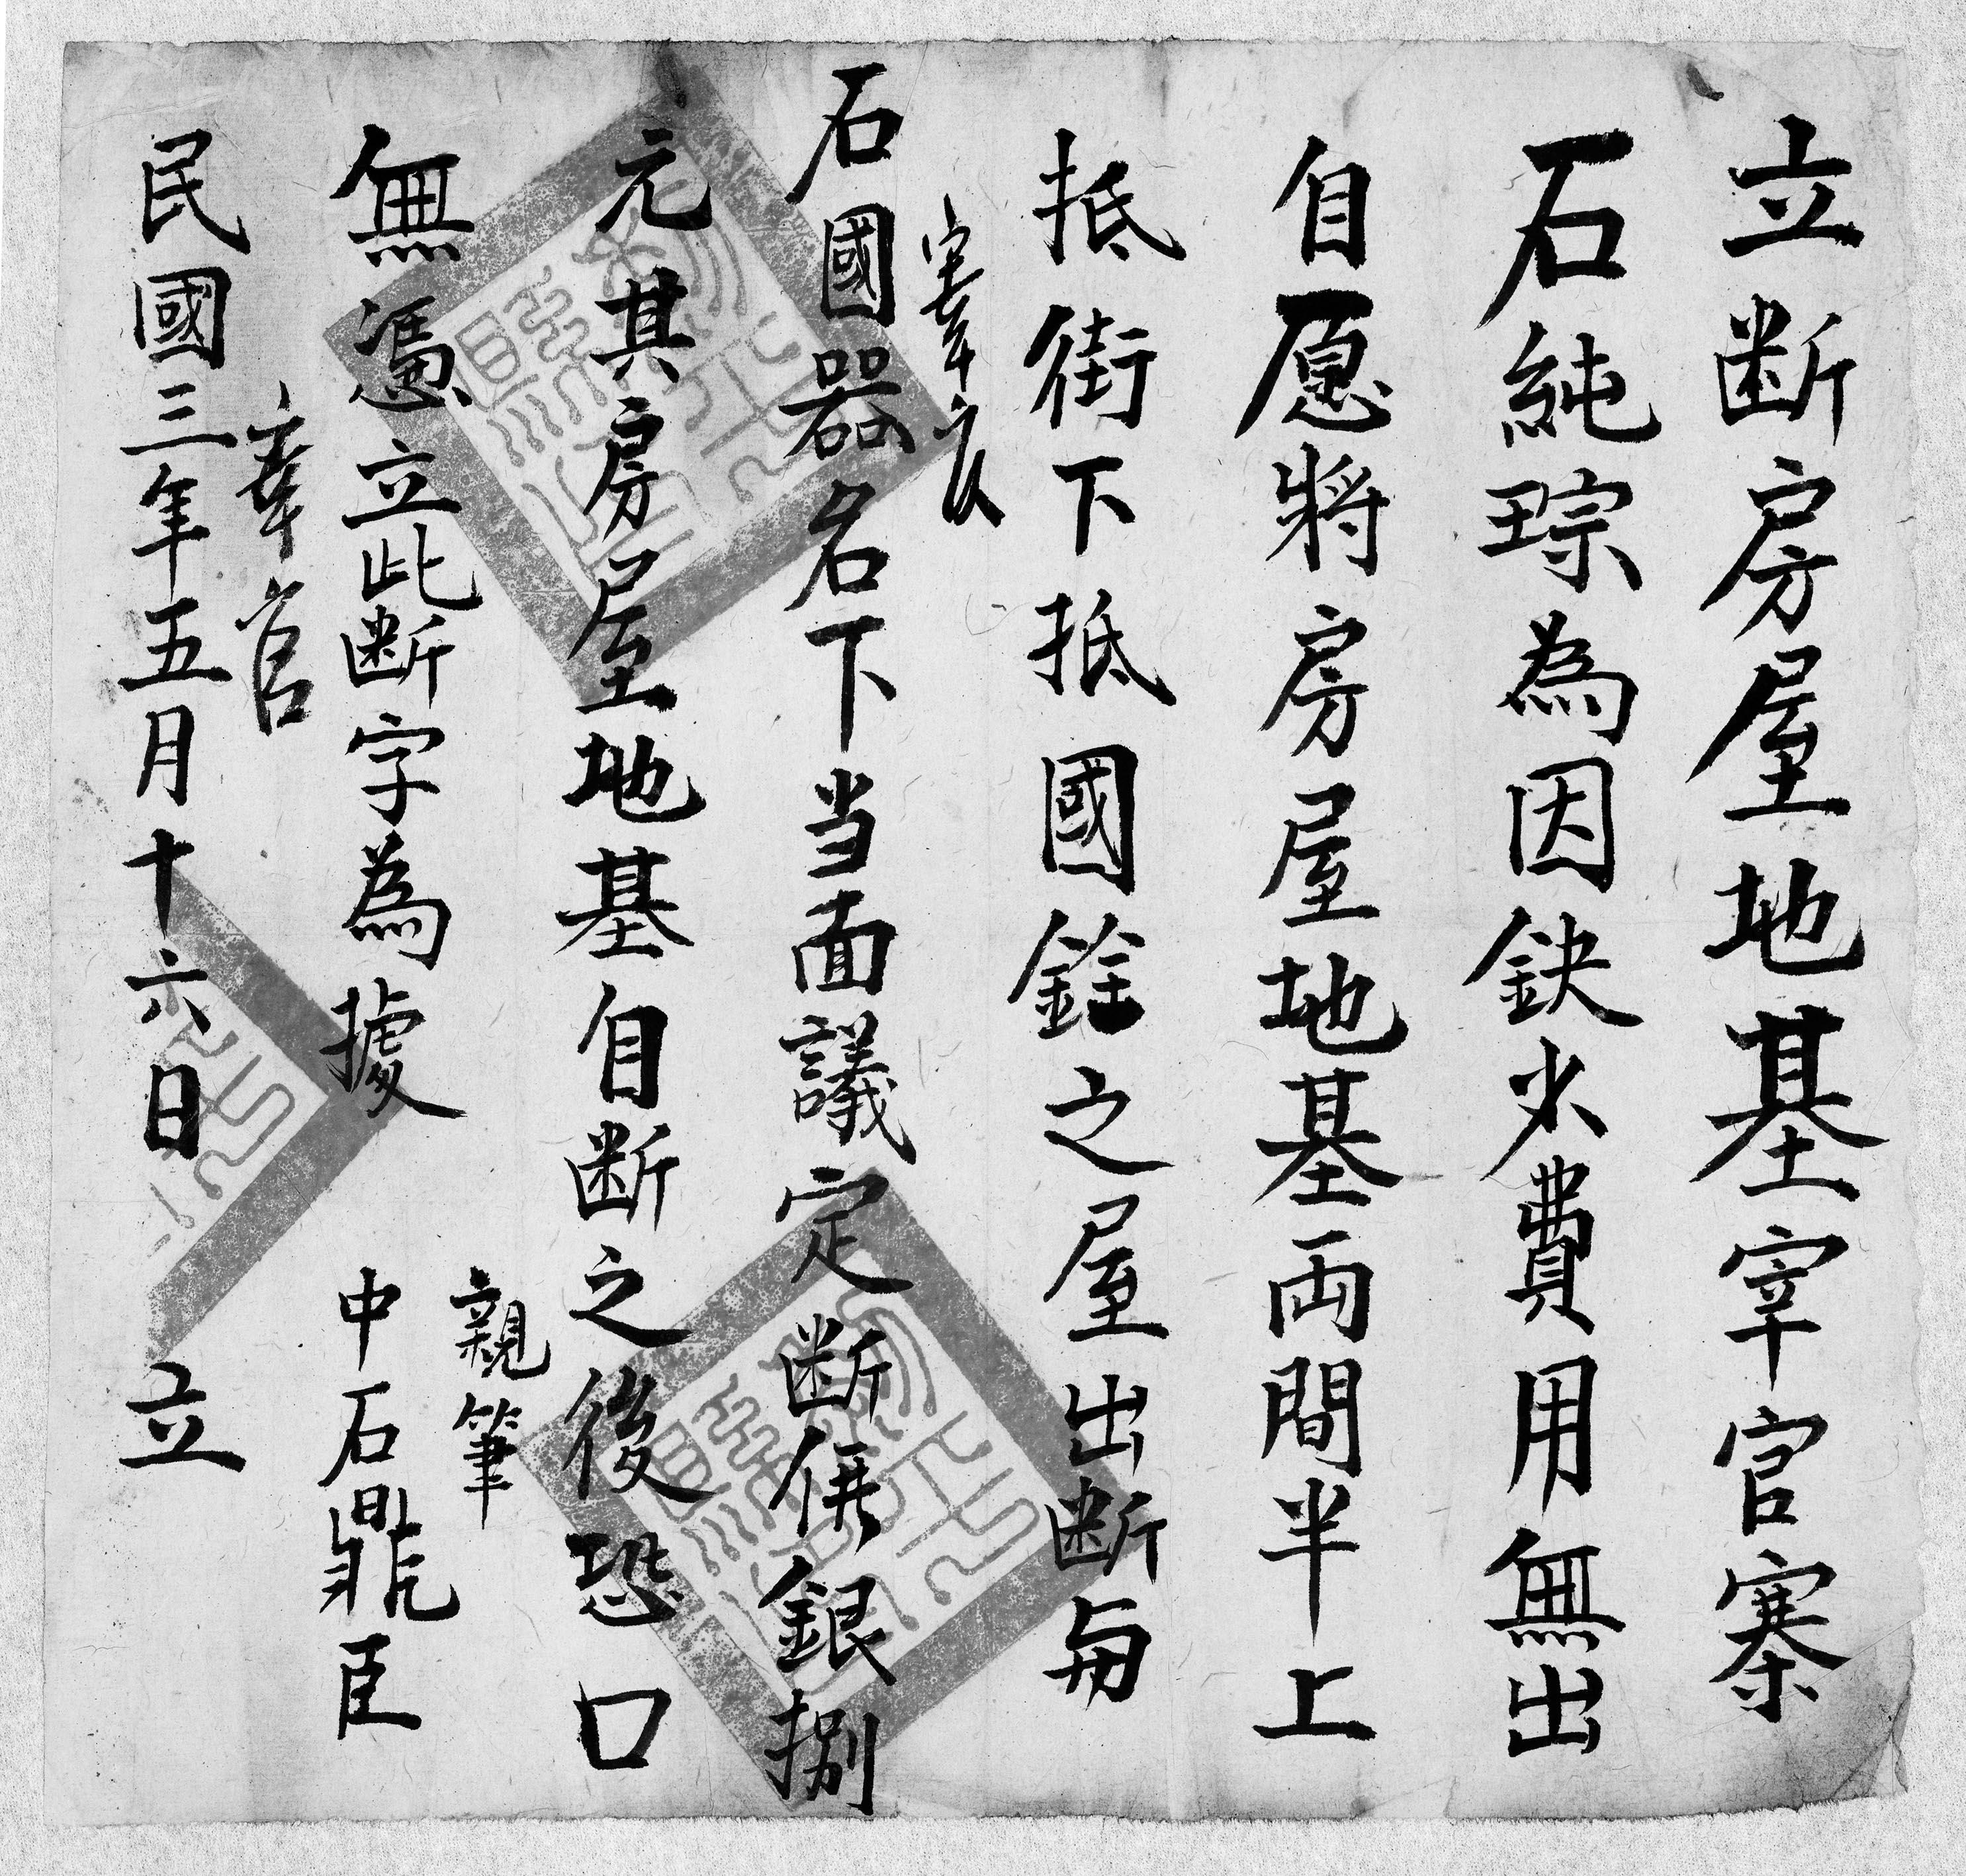 立断房屋地基宰官寨
石純琮為因鈌少費用無出
自愿將房屋地基両間半上
抵街下抵國銓之屋出断与
宰章良
石國器名下当面議定断價銀捌
元其房屋地基自断之後恐口
無憑立此断字為據
親筆
中石鼎臣
章官
民國三年五月十六日 立